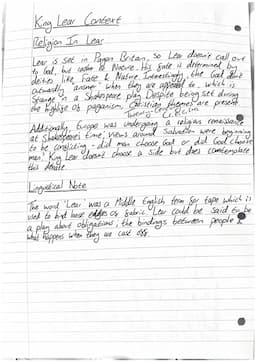 King Lear Context
Religion In Lear
Lear is set in Pagan Britain, so Lear doesn't call out
to God, but rather to Nature. His fate is determined by
deities like Fate & Nature. Interestingly, the God don't
outwardly answer when they are appealed to, which is
strange in a Shakespeare play. Despite being set during
the highlife of paganism, Christian themes are present
Twentieth Century Criticism
Additionally, Europe was undergoing a religious renaissance
at Shakespeare's time; views around salvation were beginning
to be conflicting - did man choose God or did God choose
man? King Lear doesn't choose a side but does contemplate
this debate.
Linguistical Note
The word 'Lear' was a Middle English term for tape which is
used to bind base edges of fabric. Lear could be said to be
a play about obligations, the bindings between people &
what happens when they are cast off.